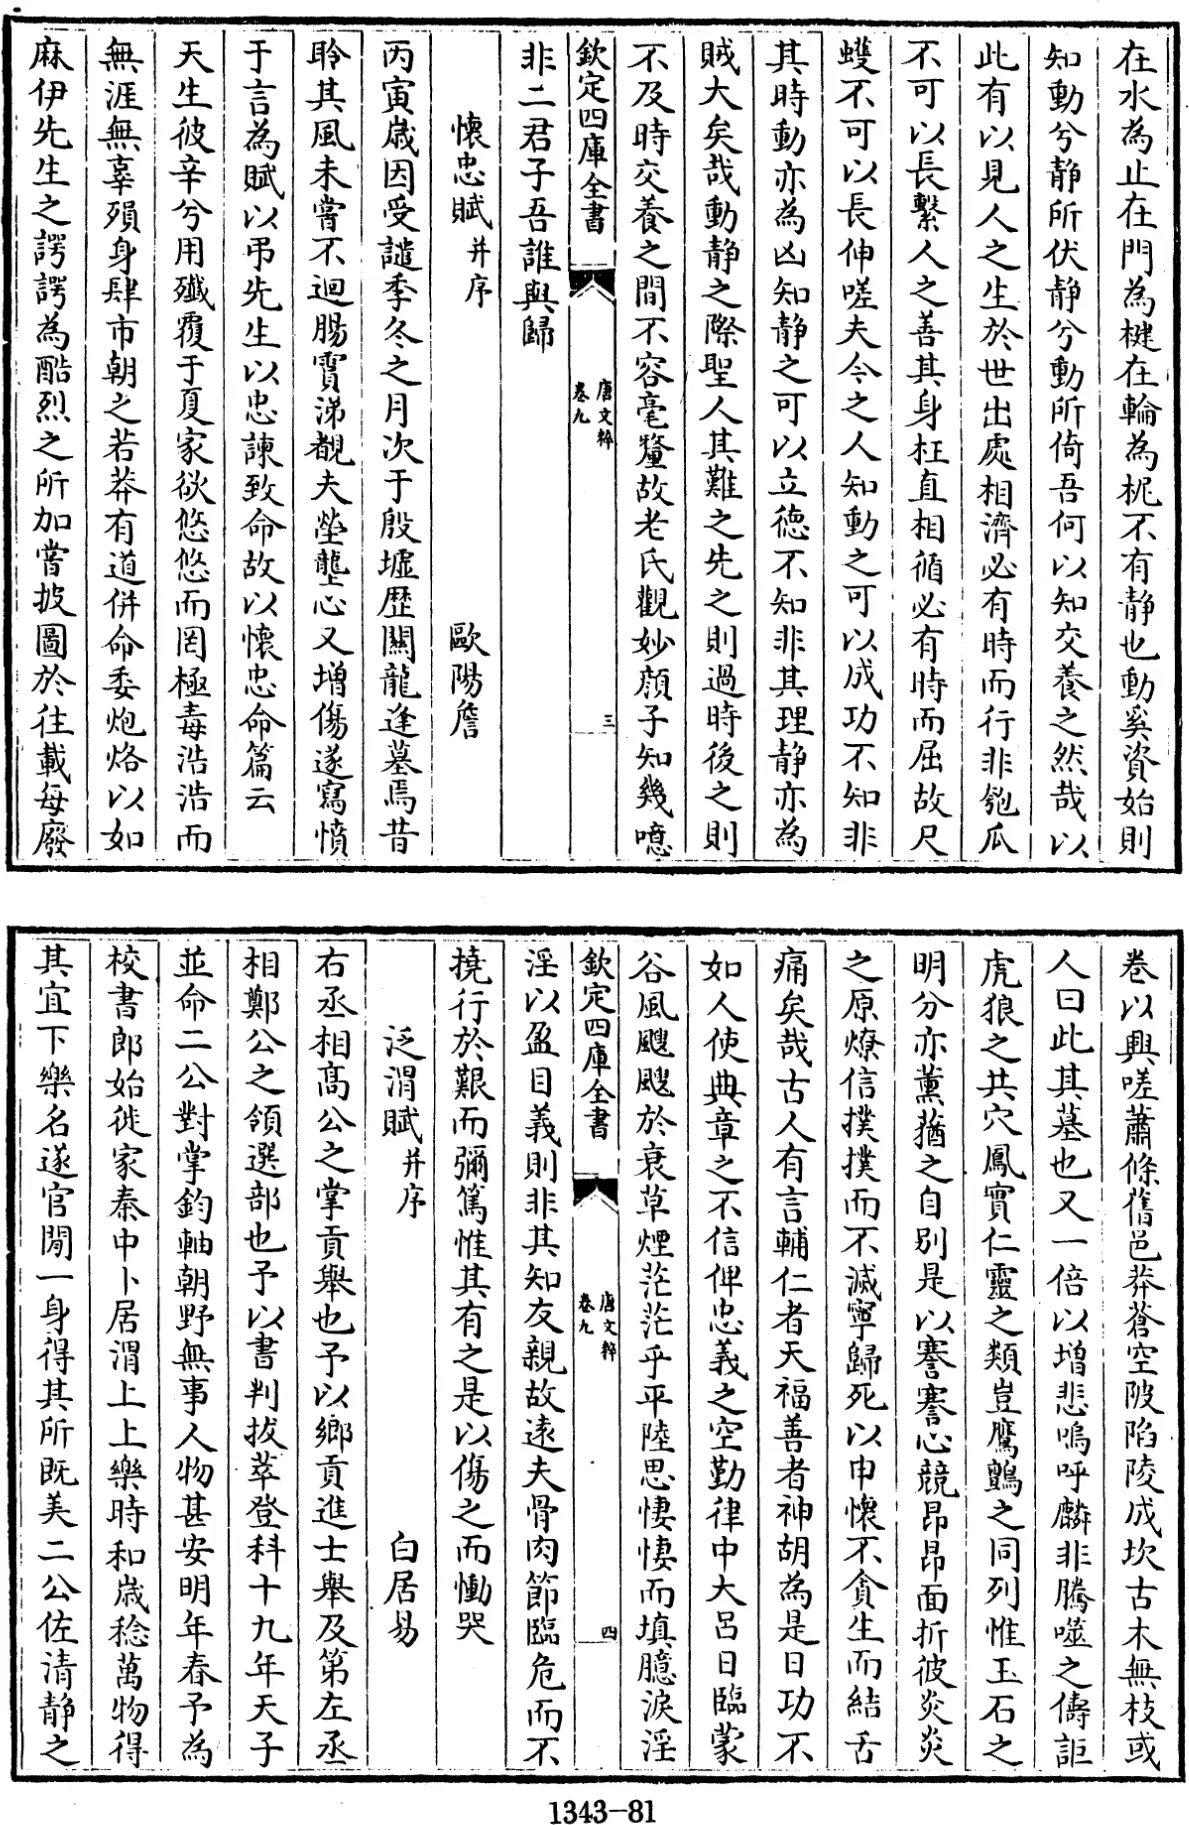 在水為止在門為楗在輪為柅不有静也動奚資始則
知動兮静所伏静兮動所倚吾何以知交養之然哉以
此有以見人之生於世出處相濟必有時而行非匏瓜
不可以長繫人之善其身枉直相循必有時而屈故尺
蠖不可以長伸嗟夫今之人知動之可以成功不知非
其時動亦為凶知静之可以立徳不知非其理静亦為
賊大矣哉動静之際聖人其難之先之則過時後之則
不及時交養之間不容毫釐故老氏觀妙顔子知幾噫
欽定四庫全書 唐文粹 卷九 三
非二君子吾誰與歸
懷忠賦并序 歐陽詹
丙寅嵗因受譴季冬之月次于殷墟歴闗龍逢墓焉昔
聆其風未嘗不迴腸霣涕覩夫塋壟心又增傷遂寫憤
于言為賦以弔先生以忠諫致命故以懷忠命篇云
天生彼辛兮用殲覆于夏家欲悠悠而罔極毒浩浩而
無涯無辜殞身肆市朝之若莽有道併命委炮烙以如
麻伊先生之諤諤為酷烈之所加嘗披圖於往載每廢
卷以興嗟蕭條舊邑莽蒼空陂陷陵成坎古木無枝或
人曰此其墓也又一倍以增悲嗚呼麟非騰噬之儔詎
虎狼之共穴鳳實仁靈之類豈鷹鸇之同列惟玉石之
明分亦薰蕕之自別是以謇謇心競昂昂面折彼炎炎
之原燎信撲撲而不滅寧歸死以申懷不貪生而結舌
痛矣哉古人有言輔仁者天福善者神胡為是日功不
如人使典章之不信俾忠義之空勤律中大呂日臨蒙
谷風颼颼於衰草煙茫茫乎平陸思悽悽而填臆淚淫
欽定四庫全書 唐文粹 卷九 四
淫以盈目義則非其知友親故逺夫骨肉節臨危而不
撓行於艱而彌篤惟其有之是以傷之而慟哭
泛渭賦并序 白居易
右丞相髙公之掌貢舉也予以鄉貢進士舉及第左丞
相鄭公之領選部也予以書判拔萃登科十九年天子
並命二公對掌鈞軸朝野無事人物甚安明年春予為
校書郎始徙家秦中卜居渭上上樂時和嵗稔萬物得
其宜下樂名遂官閒一身得其所既美二公佐清静之
1343-81